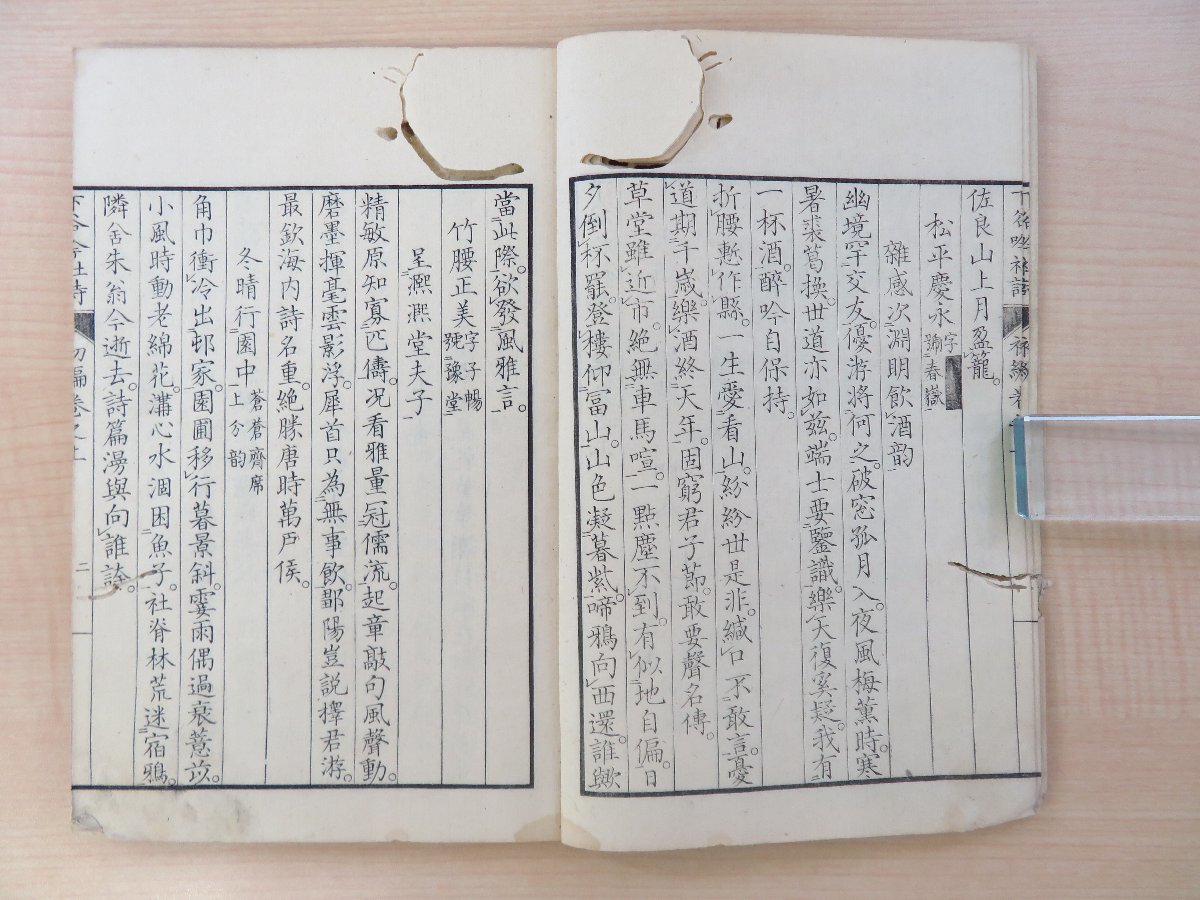 佐良山上月盈籠。
松平慶永 字 號春嶽
雜感次淵明飲酒韵
幽境罕交友。優游將何之。破窓孤月入。夜風梅薫時。寒
暑裘葛換。世道亦如茲。端士要鑒識。樂天復奚疑。我有
一杯酒。醉吟自保持。
折腰慙作縣。一生愛看山。紛紛世是非。緘口不敢言。憂
道期千歳。樂酒終天年。固窮君子節。敢要聲名傳。
草堂雖近市。絶無車馬喧。一點塵不到。有似地自偏。日
夕倒杯罷。登樓仰冨山。山色凝暮紫。啼鴉向西還。誰歟
當此際。欲發風雅言。
竹腰正美 字子暢 號豫堂
呈㶑㶑堂夫子
精敏原知寡匹儔。况看雅量冠儒流。起章敲句風聲動。
磨墨揮毫雲影浮。犀首只為無事飲。鄒陽豈説擇君游。
最欽海内詩名重。絶勝唐時萬戸侯。
冬晴行園中 蒼蒼齋席上分韵
角巾衝冷出邨家。園圃移行暮景斜。霎雨偶過衰薏苡。
小風時動老綿花。溝心水涸困魚子。社脊林荒迷宿鴉。
隣舎朱翁今逝去。詩篇漫與向誰誇。
初編卷之上
二